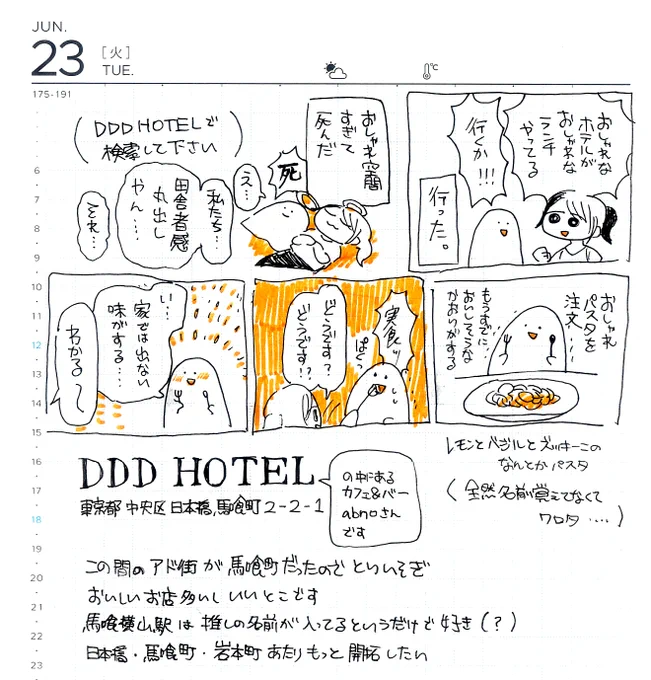 JUN.
23
[火]
TUE.
℃
175-191
6
7
8
9
10
11
12
13
14
15
16
17
18
19
20
21
22
23
おしゃれな
ホテルが
おしゃれな
ランチ
やってる
行くか!!!
行った。
おしゃれ空間
すぎて
死んだ
死
え…
私たち…
田舎者感
丸出し
やん…
それ…
(DDD HOTELで
検索して下さい)
おしゃれ
パスタを
注文
もうすでに…
おいしそうな
かおりがする
実食ッ
ぱくっ
どうです?
どうです!?
い…
家では出ない
味がする…
わかる〜
レモンとバジルとズッキーニの
なんとかパスタ
(全然名前覚えてなくて
ワロタ….)
DDD HOTEL
東京都中央区日本橋馬喰町2-2-1
の中にある
カフェ&バー
abnoさん
です
この間のアド街が馬喰町だったのでといいそぎ
おいしいお店多いし いいとこです
馬喰横山駅は推しの名前が入ってるというだけで好き(?)
日本橋・馬喰町・岩本町あたりもっと開拓したい